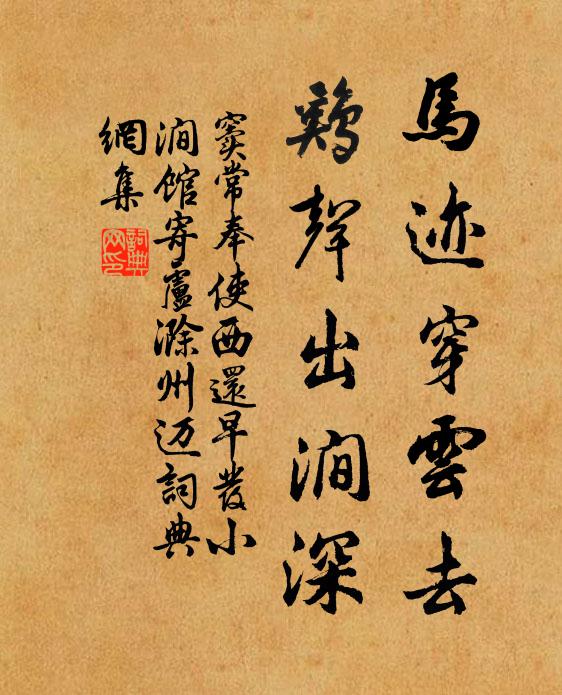 馬迹穿雲去
鷄聲出澗深
竇常奉使西還早發小
澗館寄盧滁州迈詞典
網集
詞典網印